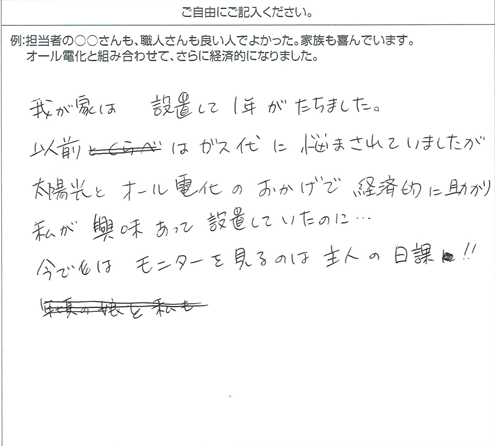 ご自由にご記入ください。
例:担当者の○○さんも、職人さんも良い人でよかった。家族も喜んでいます。
オール電化と組み合わせて、さらに経済的になりました。
我が家は 設置して1年がたちました。
以前とくらべはガス代に悩まされていましたが
太陽光とオール電化のおかげで経済的に助かり
私が興味あって設置していたのに…
今ではモニターを見るのは主人の日課!!
年頃の娘と私も